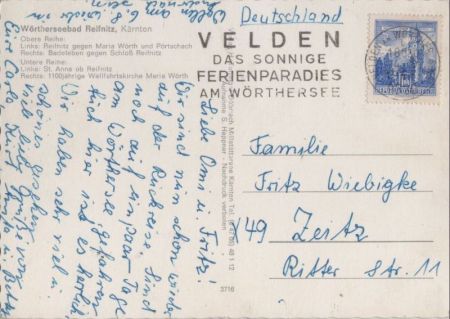 Wörtherseebad Reifnitz, Kärnten
Obere Reihe:
Links: Reifnitz gegen Maria Wörth und Pörtschach
Rechts: Badeleben gegen Schloß Reifnitz
Untere Reihe:
Links: St. Anna ob Reifnitz
Rechts: 1100jährige Wallfahrtskirche Maria Wörth
Deutschland
VELDEN
DAS SONNIGE
FERIENPARADIES
AM WÖRTHERSEE
Familie
Fritz Wiebigke
X49 Zeitz
Ritter Str. 11
Liebe Omi u. Fritz!
Wir sind nun schon wieder
auf der Rückreise. Sind
noch auf ein paar Tage
am Wörthersee gefahren.
Auch hier ist es herrlich.
Wir haben sehr viel
schönes gesehen.
Viele Grüße von
wollen am 6.8. wieder in
sein
3716